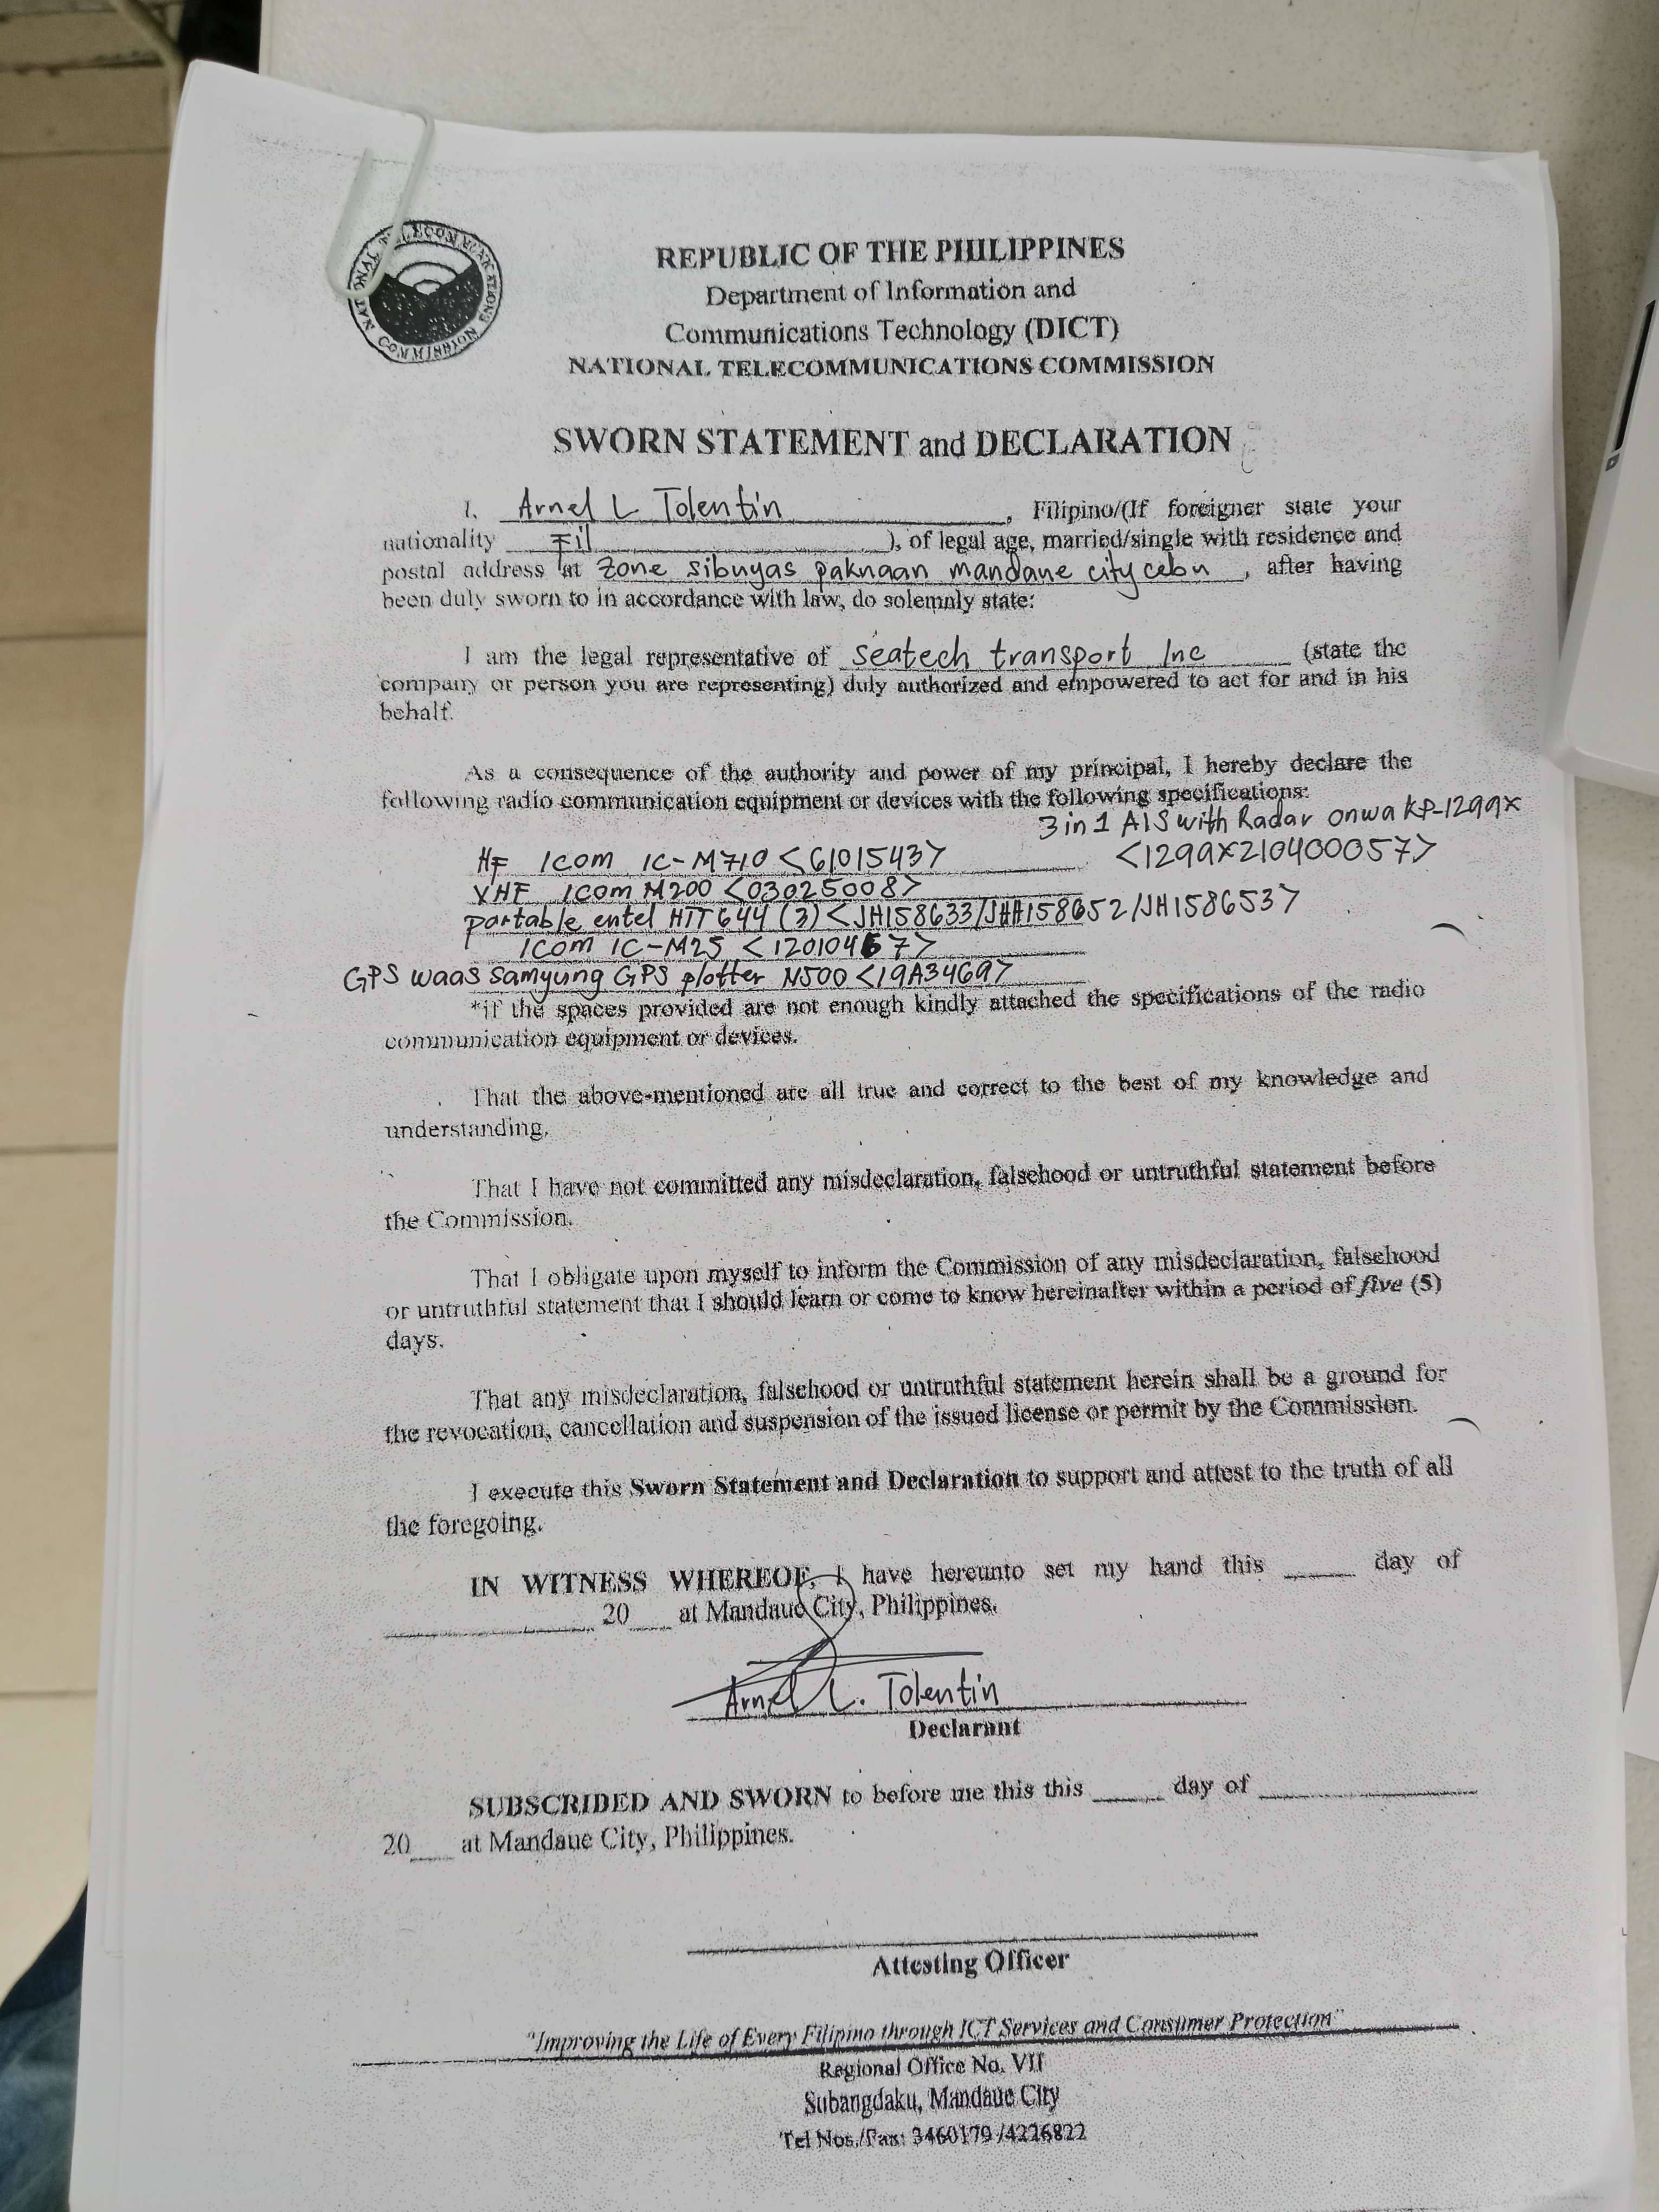 NATIONAL TELECOMMUNICATIONS COMMISSION
REPUBLIC OF THE PHILIPPINES
Department of Information and
Communications Technology (DICT)
NATIONAL TELECOMMUNICATIONS COMMISSION
SWORN STATEMENT and DECLARATION
I, Arnel L Tolentin, Filipino/(If foreigner state your
nationality Fil), of legal age, married/single with residence and
postal address at Zone sibuyas paknaan mandaue city cebu, after having
been duly sworn to in accordance with law, do solemnly state:
I am the legal representative of seatech transport Inc (state the
company or person you are representing) duly authorized and empowered to act for and in his
behalf.
As a consequence of the authority and power of my principal, I hereby declare the
following radio communication equipment or devices with the following specifications:
3 in 1 AIS with Radar onwa KP-1299X
<1299X2104000057>
HF Icom IC-M710 <6101543>
VHF Icom M200 <03025008>
portable entel HT 644 (3) <JH158633/JHH158652/JH158653>
Icom IC-M25 <12010467>
GPS waas Samyung GPS plotter N500 <19A3469>
*if the spaces provided are not enough kindly attached the specifications of the radio
communication equipment or devices.
That the above-mentioned are all true and correct to the best of my knowledge and
understanding.
That I have not committed any misdeclaration, falsehood or untruthful statement before
the Commission.
That I obligate upon myself to inform the Commission of any misdeclaration, falsehood
or untruthful statement that I should learn or come to know hereinafter within a period of five (5)
days.
That any misdeclaration, falsehood or untruthful statement herein shall be a ground for
the revocation, cancellation and suspension of the issued license or permit by the Commission.
I execute this Sworn Statement and Declaration to support and attest to the truth of all
the foregoing.
IN WITNESS WHEREOF, I have hereunto set my hand this ____ day of
____ 20__ at Mandaue City, Philippines.
Arnel L. Tolentin
Declarant
SUBSCRIBED AND SWORN to before me this this ____ day of ____
20__ at Mandaue City, Philippines.
Attesting Officer
"Improving the Life of Every Filipino through ICT Services and Consumer Protection"
Regional Office No. VII
Subangdaku, Mandaue City
Tel Nos./Fax: 3460179 /4226822